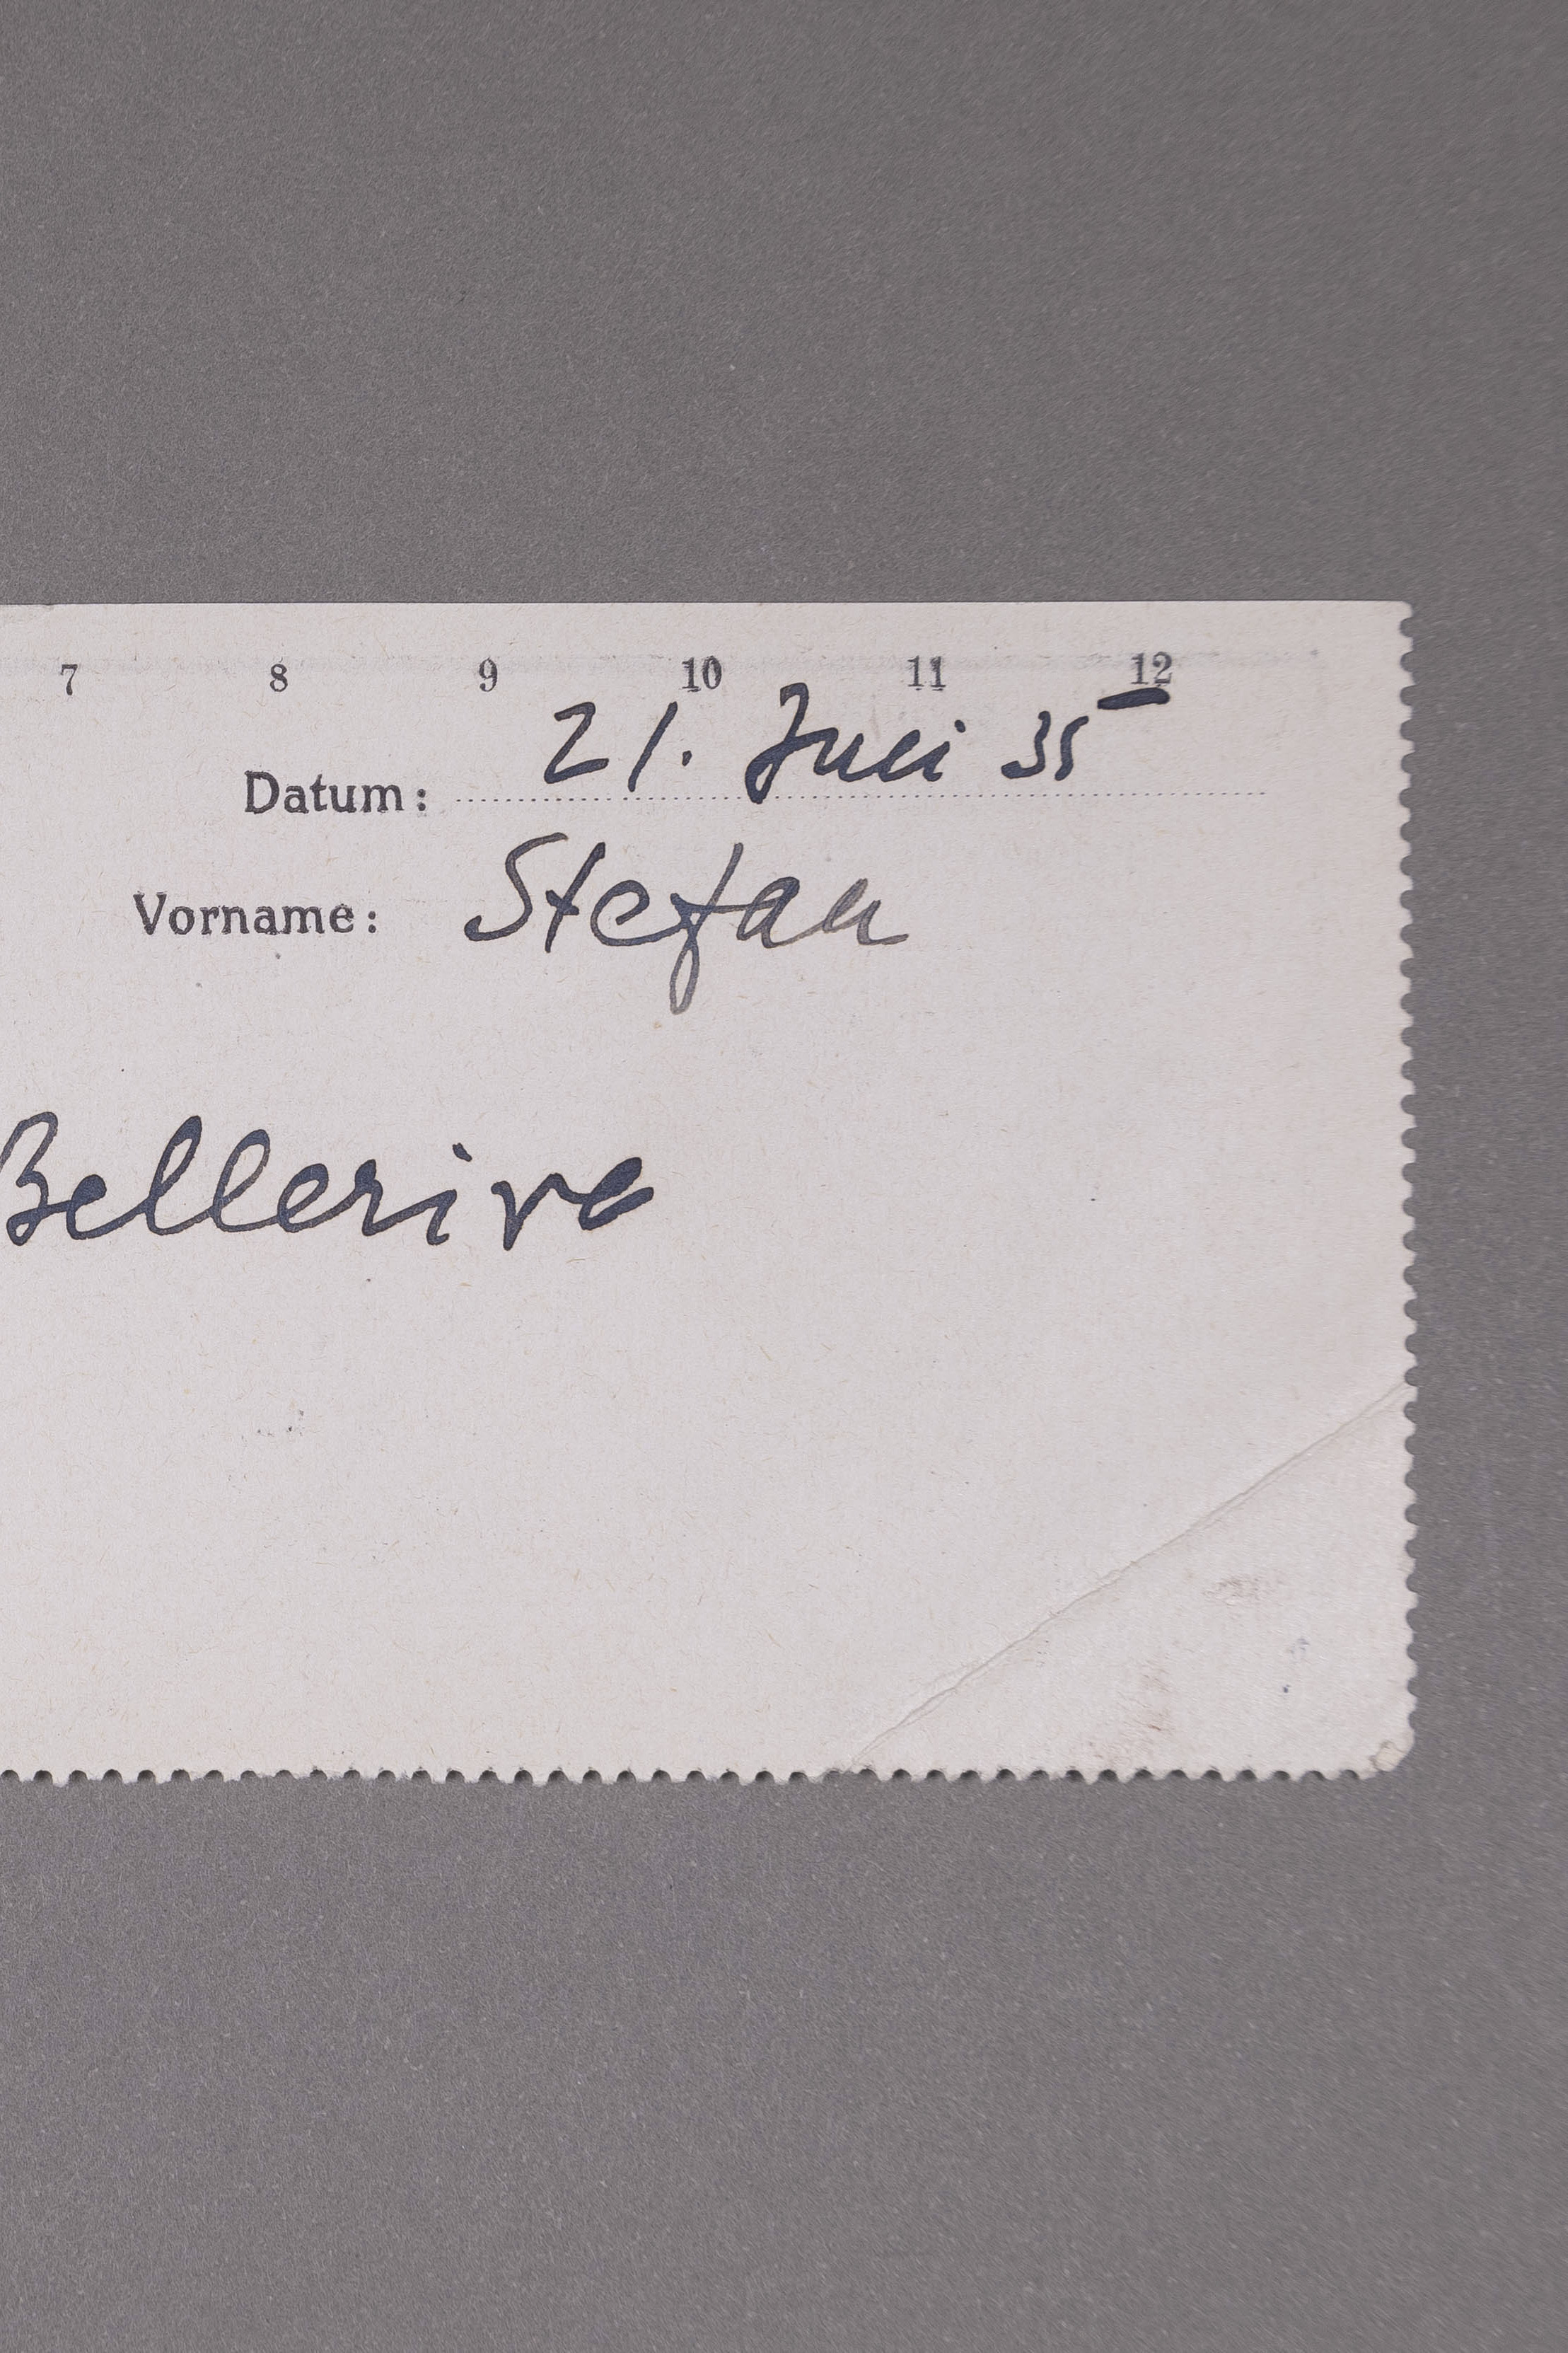 7 8 9 10 11 12
Datum: 21. Juni 35
Vorname: Stefan
Bellerive